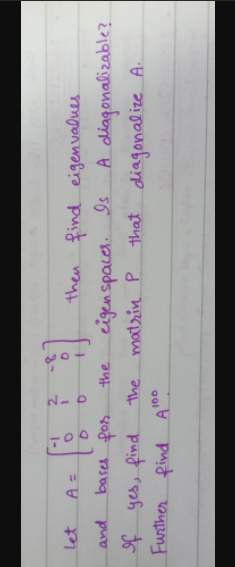 let A = [-1 2 -8
0 1 0
0 0 1] then find eigenvalues
and bases for the eigenspaces. Is A diagonalizable?
If yes, find the matrix P that diagonalize A.
Further find A¹⁰⁰.